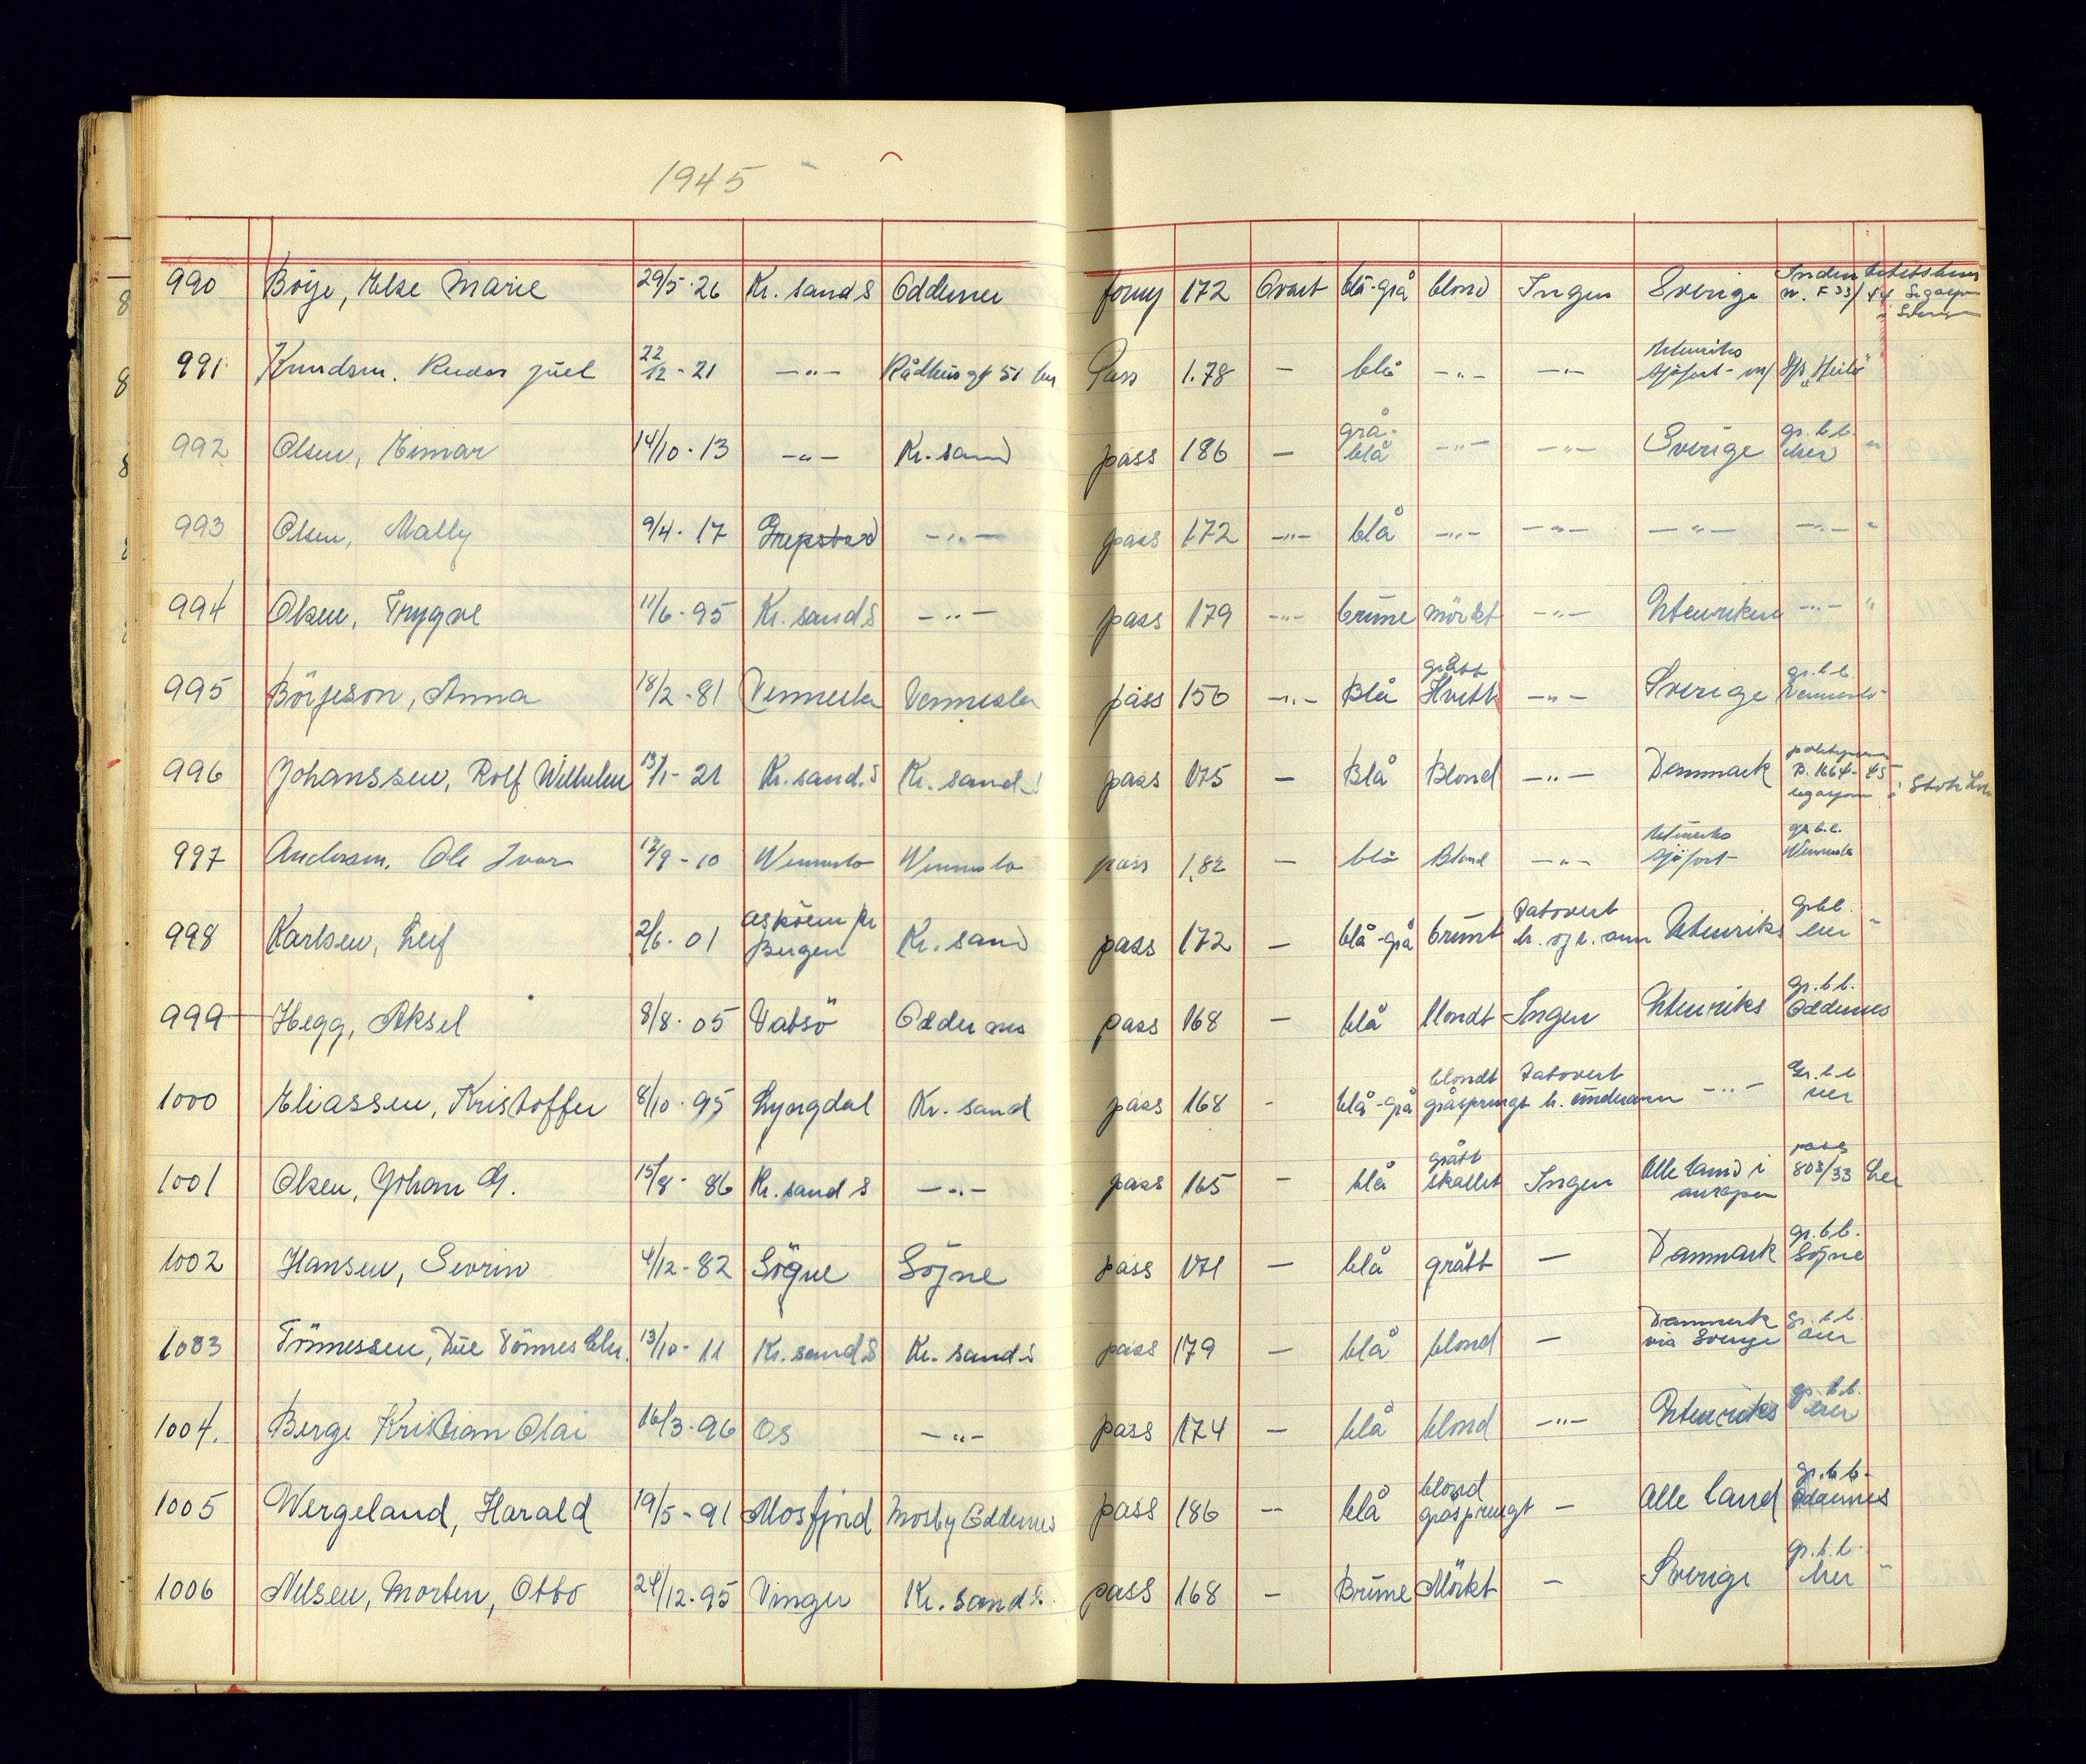 1945
990 Börje, Else Marie 29/5-26 Kr. sand S Oddernes forny 172 Ovalt blå-grå blond Ingen Sverige
nr. F 33/44
991 Knudsen. Reidar Juel 22/12-21 -"- Rådhusgt 51 her Pass 1.78 - blå -"- -"- Utenriks sjöfart
992 Olsen, Einar 14/10-13 -"- Kr. sand pass 186 - grå-blå -"- -"- Sverige gr.b.b. her "
993 Olsen, Mally 9/4-17 Grepstad -"- pass 172 -"- blå -"- -"- -"- -"- "
994 Olsen, Trygve 11/6-95 Kr. sand S -"- pass 179 -"- brune mörkt -"- Utenriks -"- "
995 Börjeson, Anna 18/2-81 Vennesla Vennesla pass 150 -"- Blå grått Hvitt -"- Sverige gr.b.b. Vennesla
996 Johanssen, Rolf Wilhelm 13/1-21 Kr. sand. S Kr. sand. S pass 175 - Blå Blond -"- Danmark B. 1664-45
997 Andersen, Ole Ivar 12/9-10 Wennesla Wennesla pass 1,82 - blå Blond -"- Utenriks sjöfart gr.b.b. Wennesla
998 Karlsen, Leif 2/6-01 Asköen pr Bergen Kr. sand pass 172 - blå-grå brunt Tatovert h. og v. arm Utenriks gr.b.b. her "
999 Hegg, Aksel 8/8-05 Vatsö Oddernes pass 168 - blå blondt Ingen Utenriks gr.b.b. Oddernes
1000 Eliassen, Kristoffer 8/10-95 Lyngdal Kr. sand pass 168 - blå-grå blondt gråsprengt Tatovert h. underarm -"- Gr.b.b. her
1001 Olsen, Johan G. 15/8-86 Kr. sand S -"- pass 165 - blå grått skallet Ingen Alle land i europa pass 803/33 her
1002 Hansen, Sevrin 4/12-82 Sögne Sögne pass 171 - blå grått - Danmark gr.b.b. Sögne
1003 Tönnessen, Due Tönnes Chr. 13/10-11 Kr. sand. S Kr. sand. S pass 179 - blå blond - Danmark via Sverige gr.b.b. her
1004. Berge Kristian Olai 16/3-96 Os -"- pass 174 - blå blond -"- Utenriks gr.b.b. her
1005 Wergeland, Harald 19/5-91 Mosfjord Mosby Oddernes pass 186 - blå blond gråsprengt - Alle land gr.b.b. Oddernes
1006 Nilsen, Morten, Otto 24/12-95 Vinger Kr. sand S. pass 168 - Brune Mörkt - Sverige gr.b.b. her "